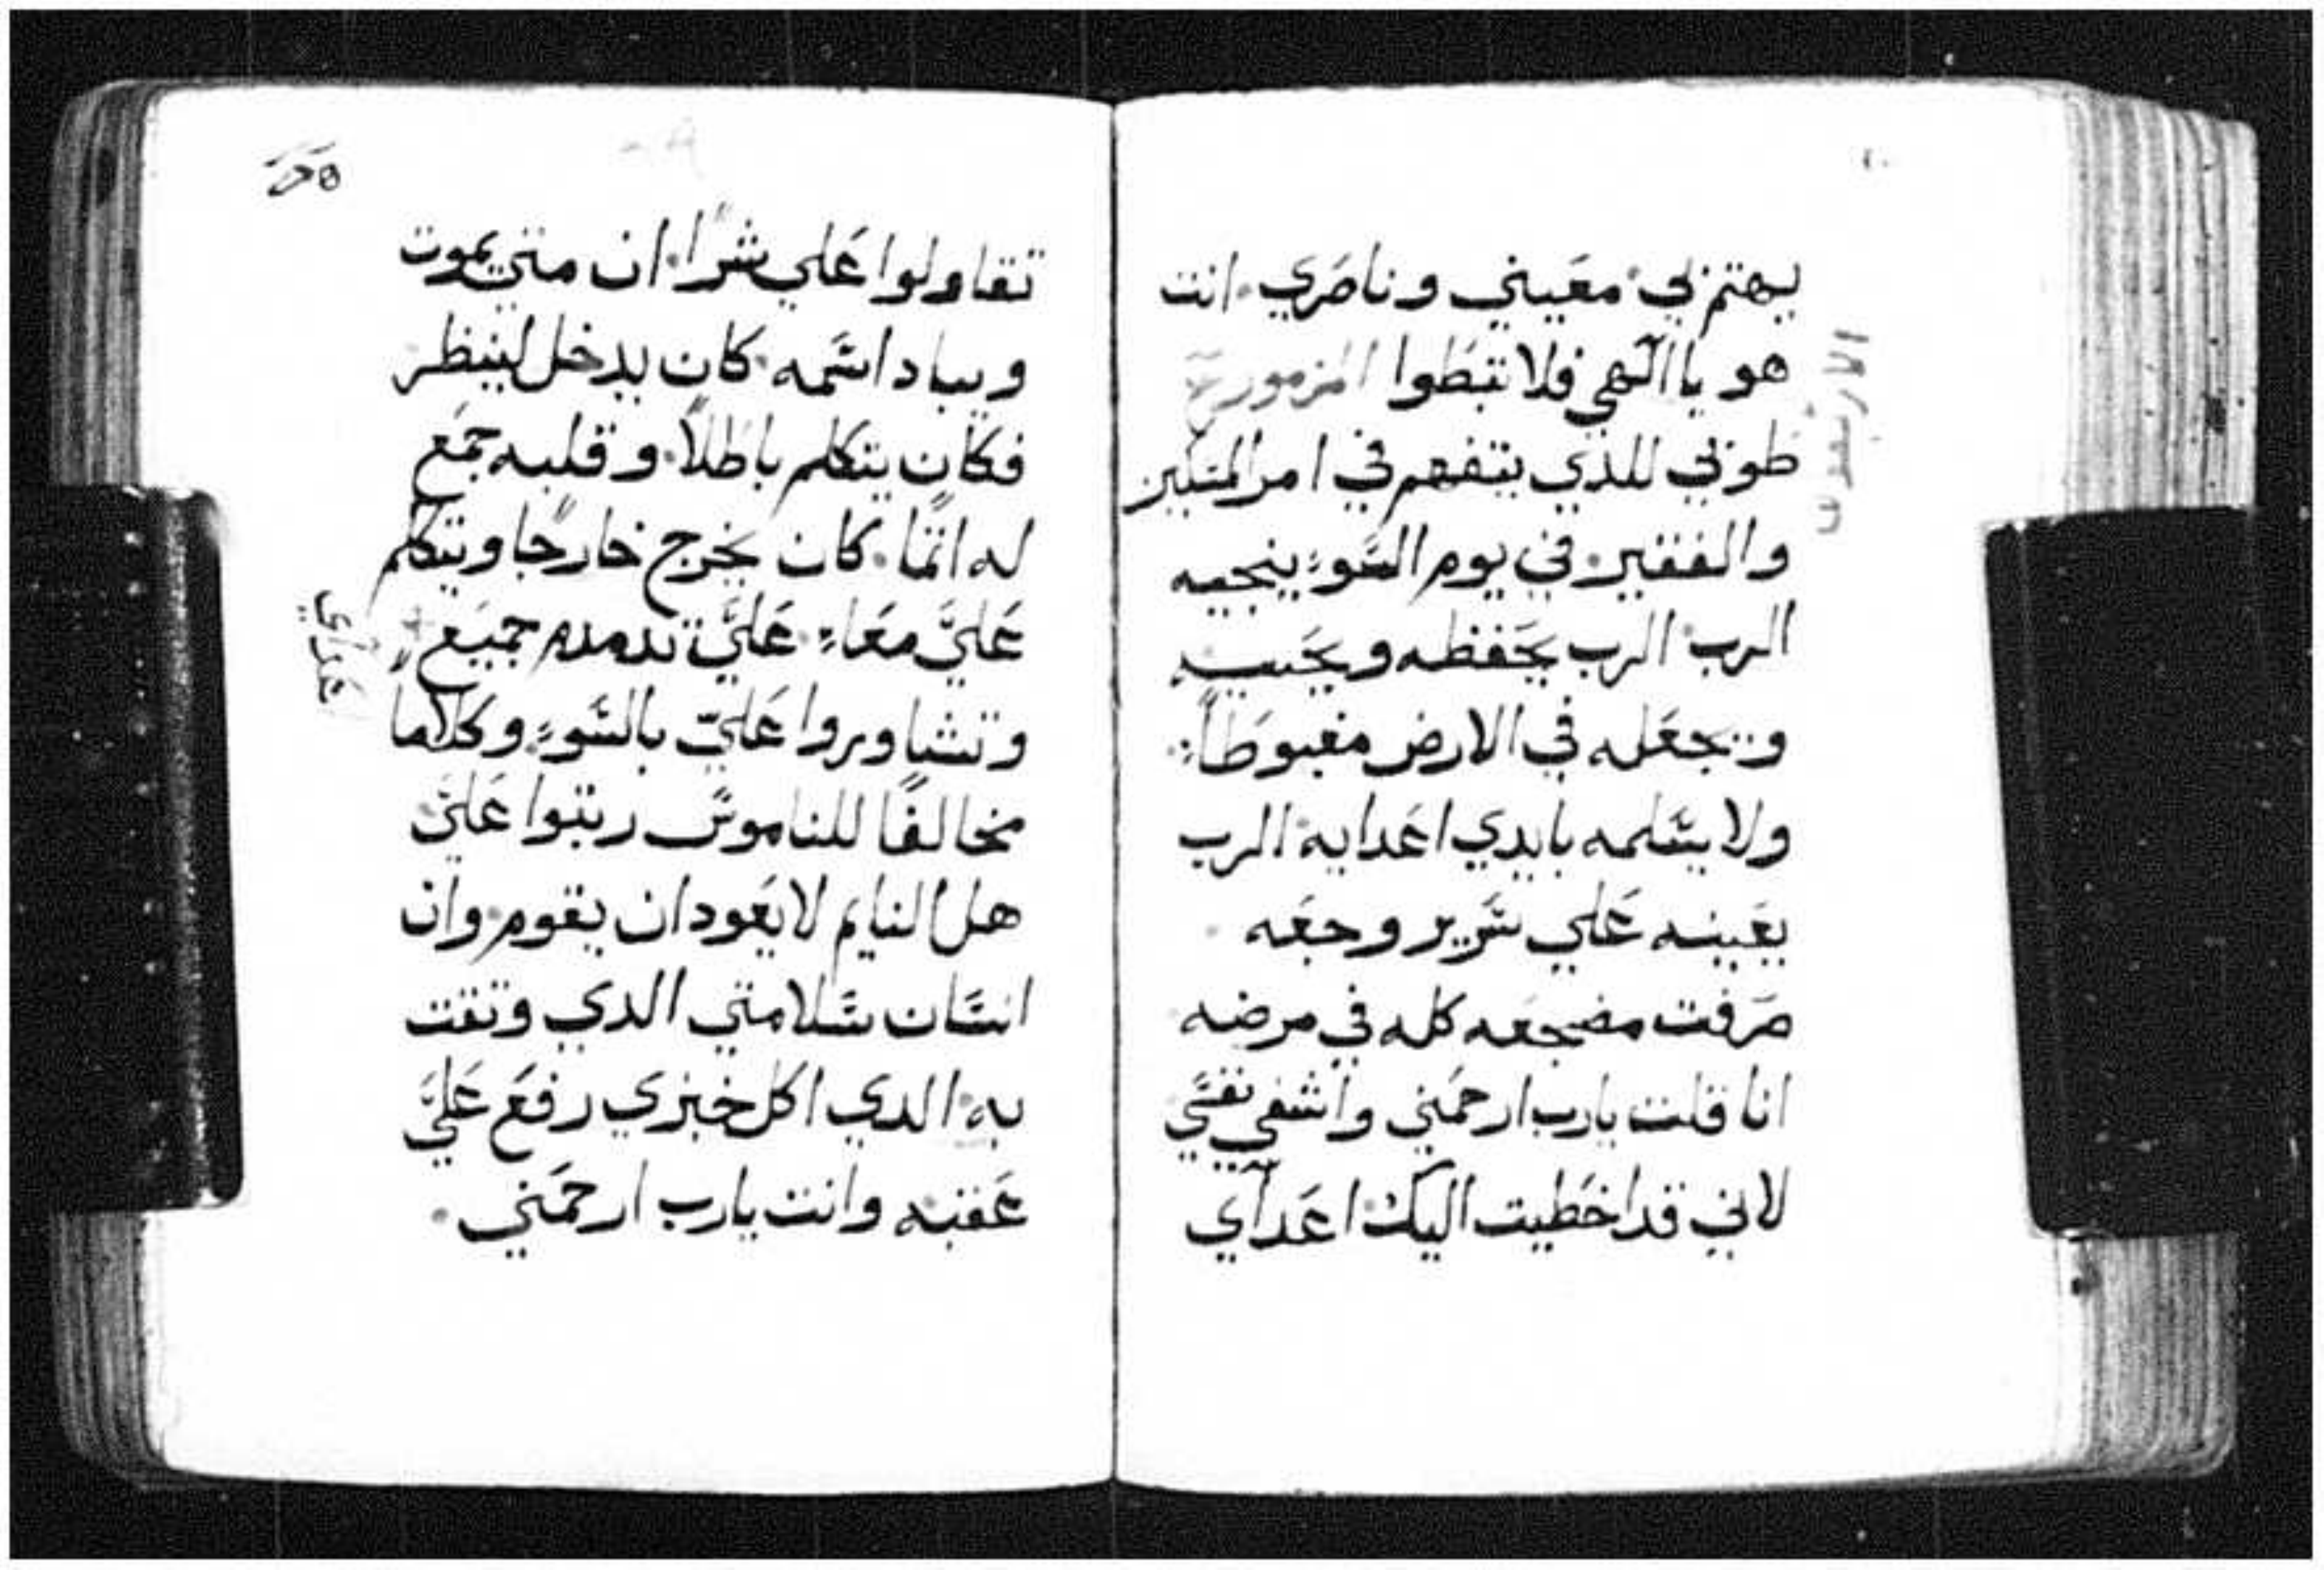 يهتم بي معيني وناصري. انت
هو يا الهي فلا تبطوا المزمور
طوبي للذي يتفهم في امر المسكين
والفقير. في يوم السوء ينجيه
الرب الرب يحفظه ويحييه
ويجعله في الارض مغبوطاً.
ولا يسلمه بايدي اعدايه الرب
يعينه علي سرير وجعه
صرفت مضجعه كله في مرضه
انا قلت يارب ارحمني واشفي نفسي
لاني قد اخطيت اليك اعدآي
الاربعون
تقاولوا علي شراً. ان متي يموت
ويباد اسمه. كان يدخل لينظر
فكان يتكلم باطلاً. وقلبه جمع
له اثمًا. كان يخرج خارجًا ويتكلم
عليَّ معاء. عليَّ تدمدم جميع
اعدآي
وتشاوروا عليّ بالسوء. وكلاماً
مخالفًا للناموس رتبوا عليَّ
هل النايم لا يعود ان يقوم. وان
انسان سلامتي الدي وتقت
به. الدي اكل خبزي رفع عليَّ
عقبه وانت يارب ارحمني.